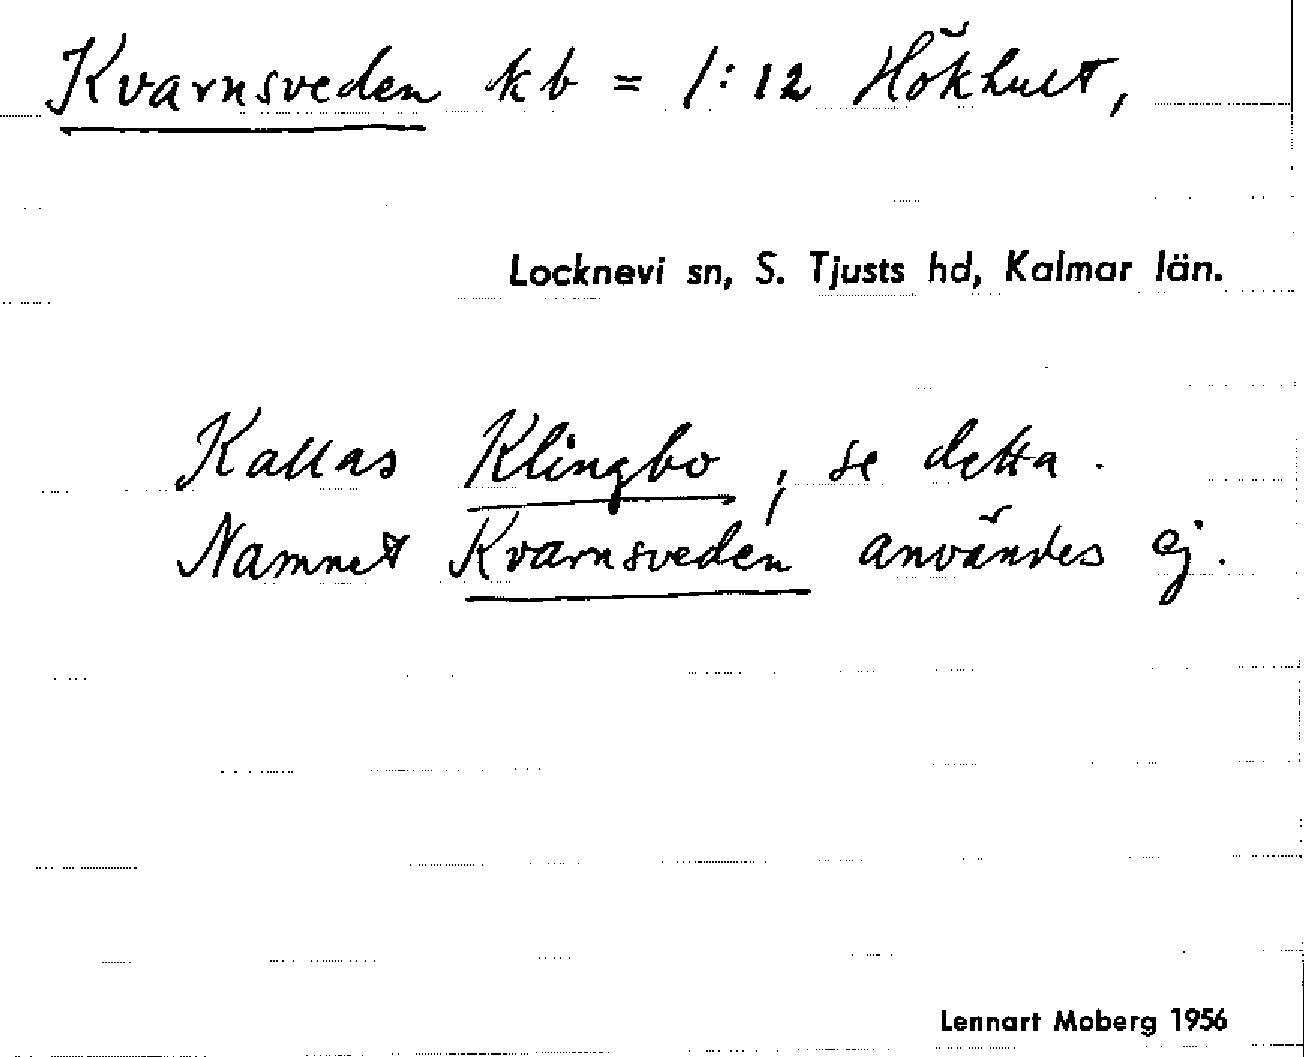 Kvarnsveden kb = 1:12 Hökhult,
Locknevi sn, S. Tjusts hd, Kalmar län.
Kallas Klingbo, se detta.
Namnet Kvarnsveden användes ej.
Lennart Moberg 1956